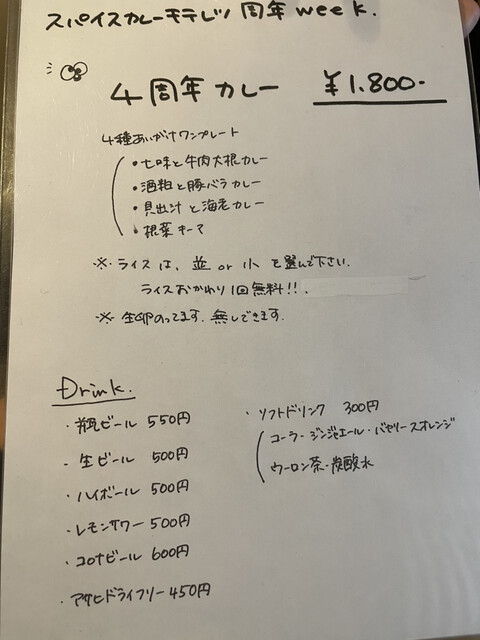 スパイスカレーモテレツ 周年 week.
4周年カレー ¥1.800-
4種あいがけワンプレート
・七味と牛肉大根カレー
・酒粕と豚バラカレー
・貝出汁と海老カレー
・根菜キーマ
※ ライスは、並 or 小 を選んで下さい.
ライスおかわり1回無料!!.
※ 生卵のってます. 無しできます.
Drink.
・瓶ビール 550円
・生ビール 500円
・ハイボール 500円
・レモンサワー 500円
・コロナビール 600円
・アサヒドライフリー 450円
・ソフトドリンク 300円
コーラ・ジンジャエール・バヤリースオレンジ
ウーロン茶・炭酸水